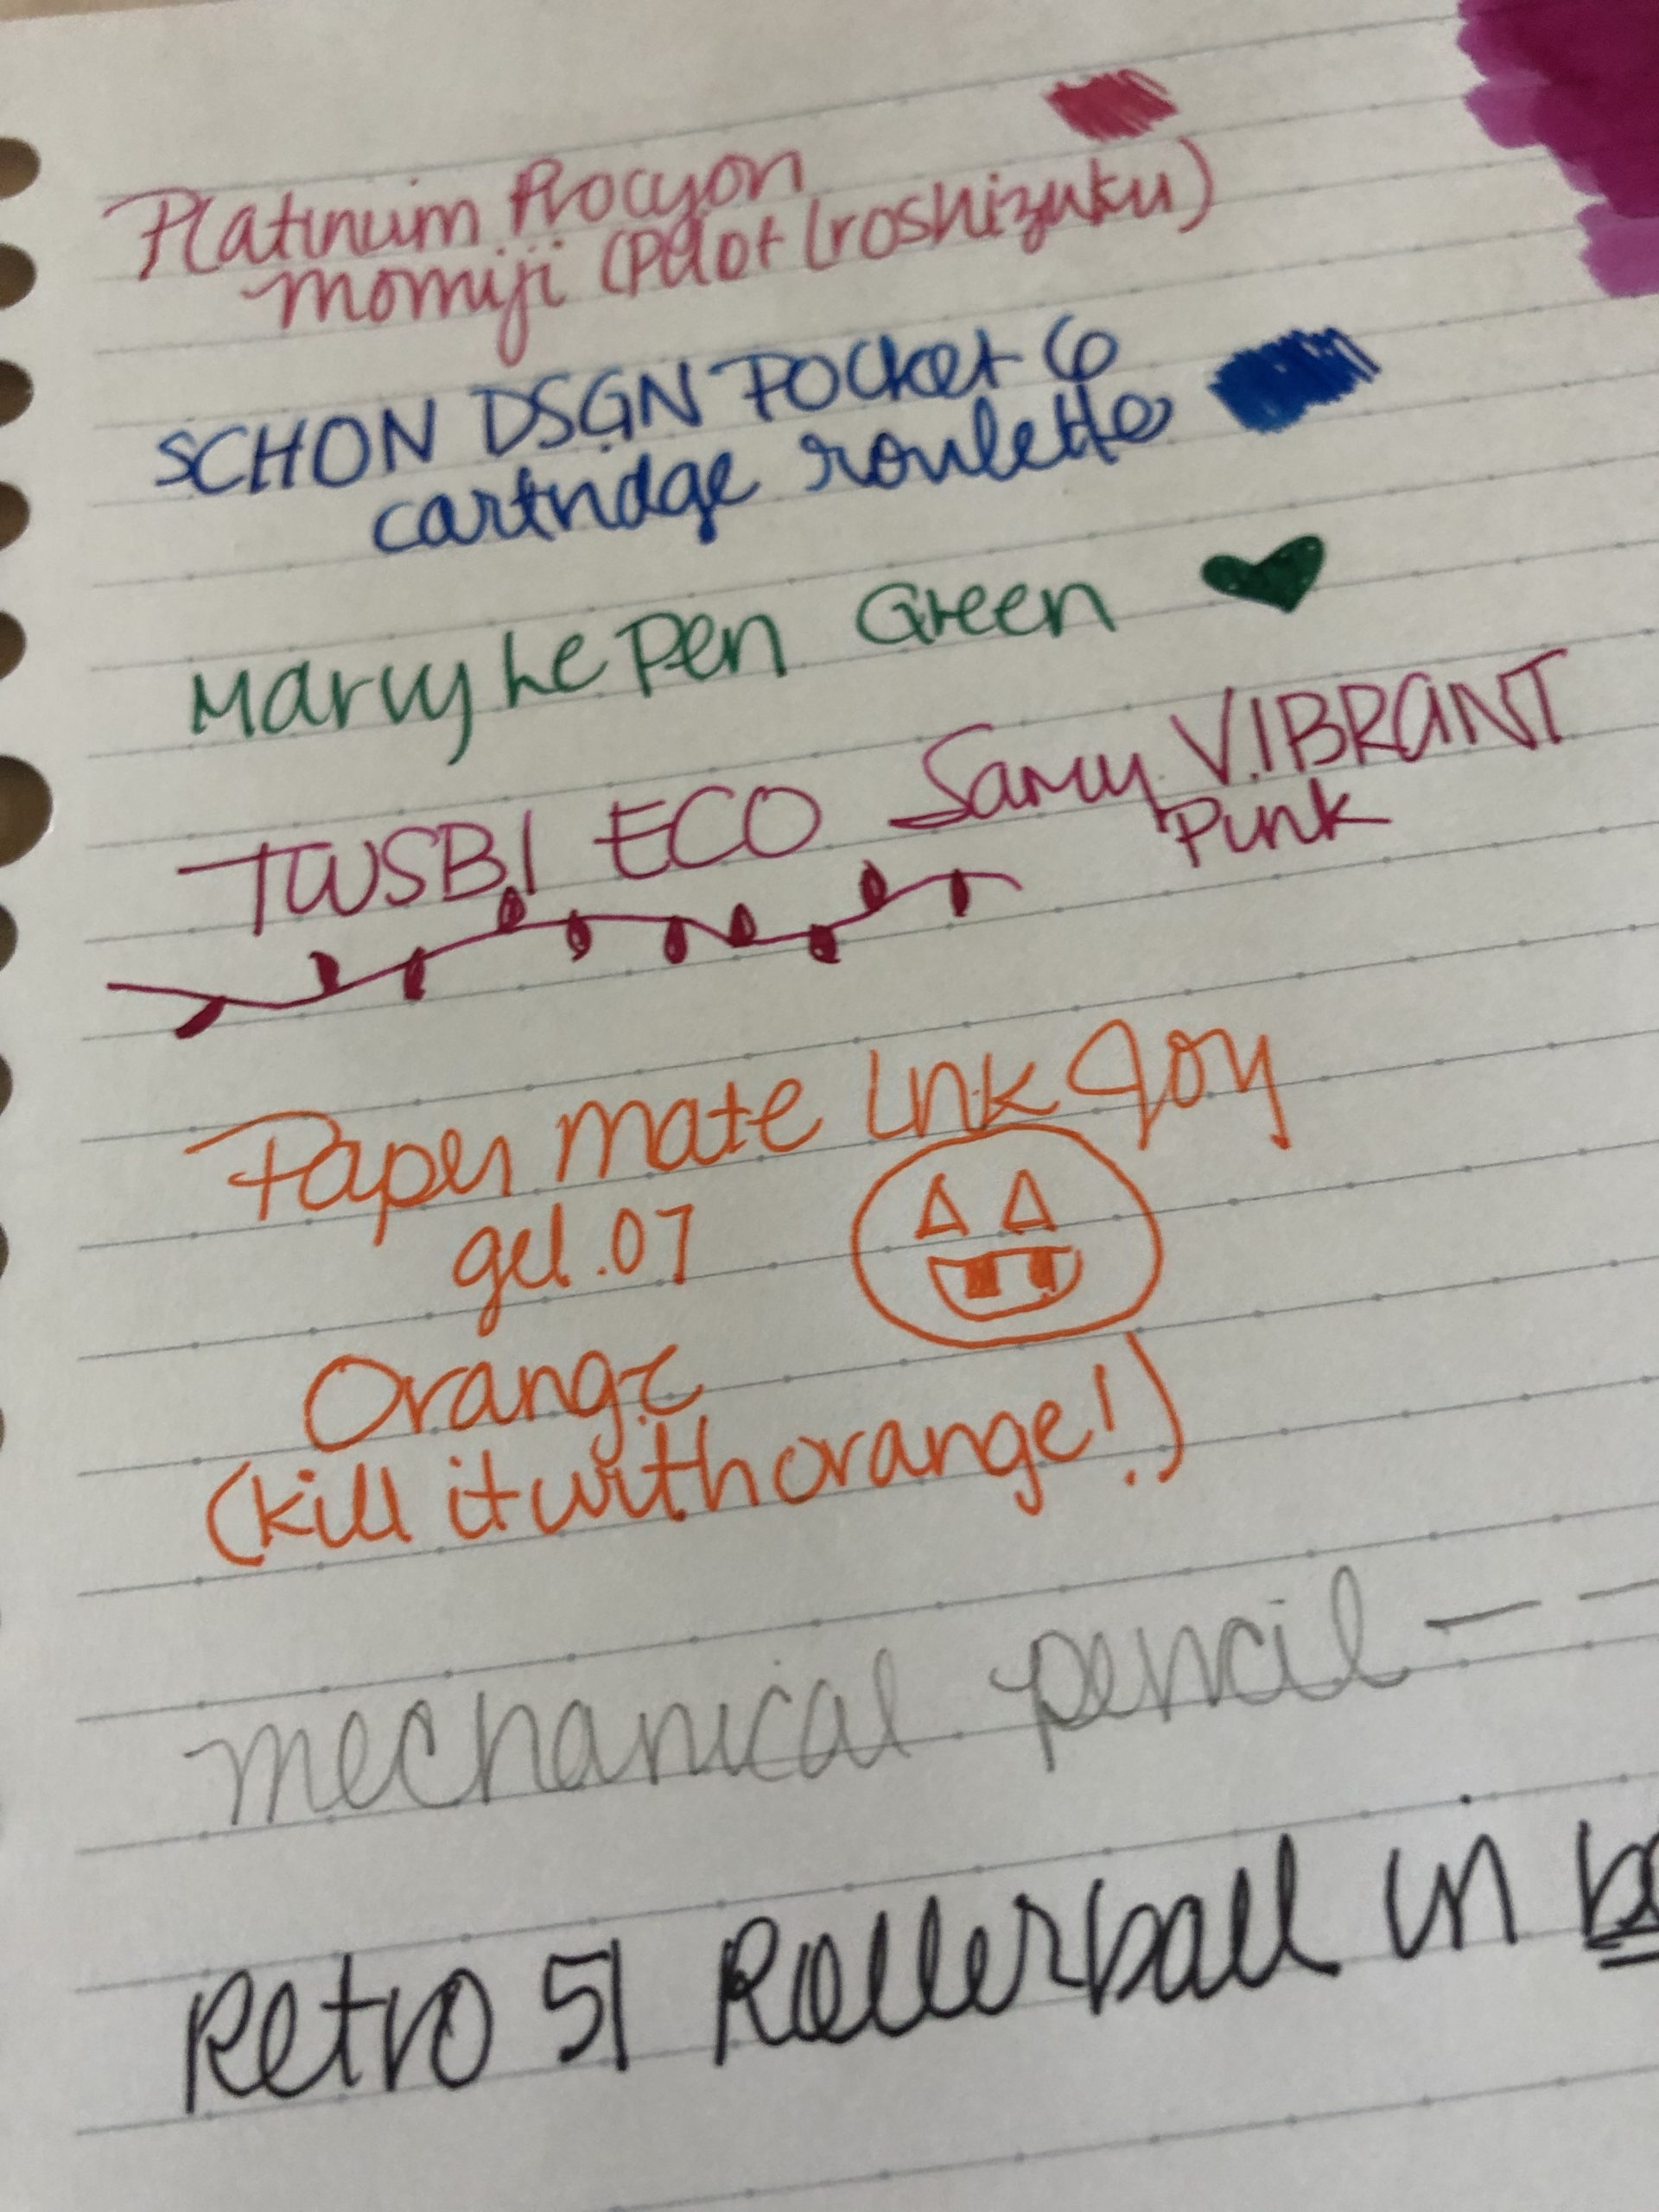 Platinum Procyon
momiji (Pilot Iroshizuku)
SCHON DSGN Pocket 6
cartridge roulette
Marvy Le Pen Green
TWSBI ECO Savvy VIBRANT
Pink
Paper mate Ink Joy
gel .07
Orange
(kill it with orange!)
mechanical pencil — —
Retro 51 Rollerball in